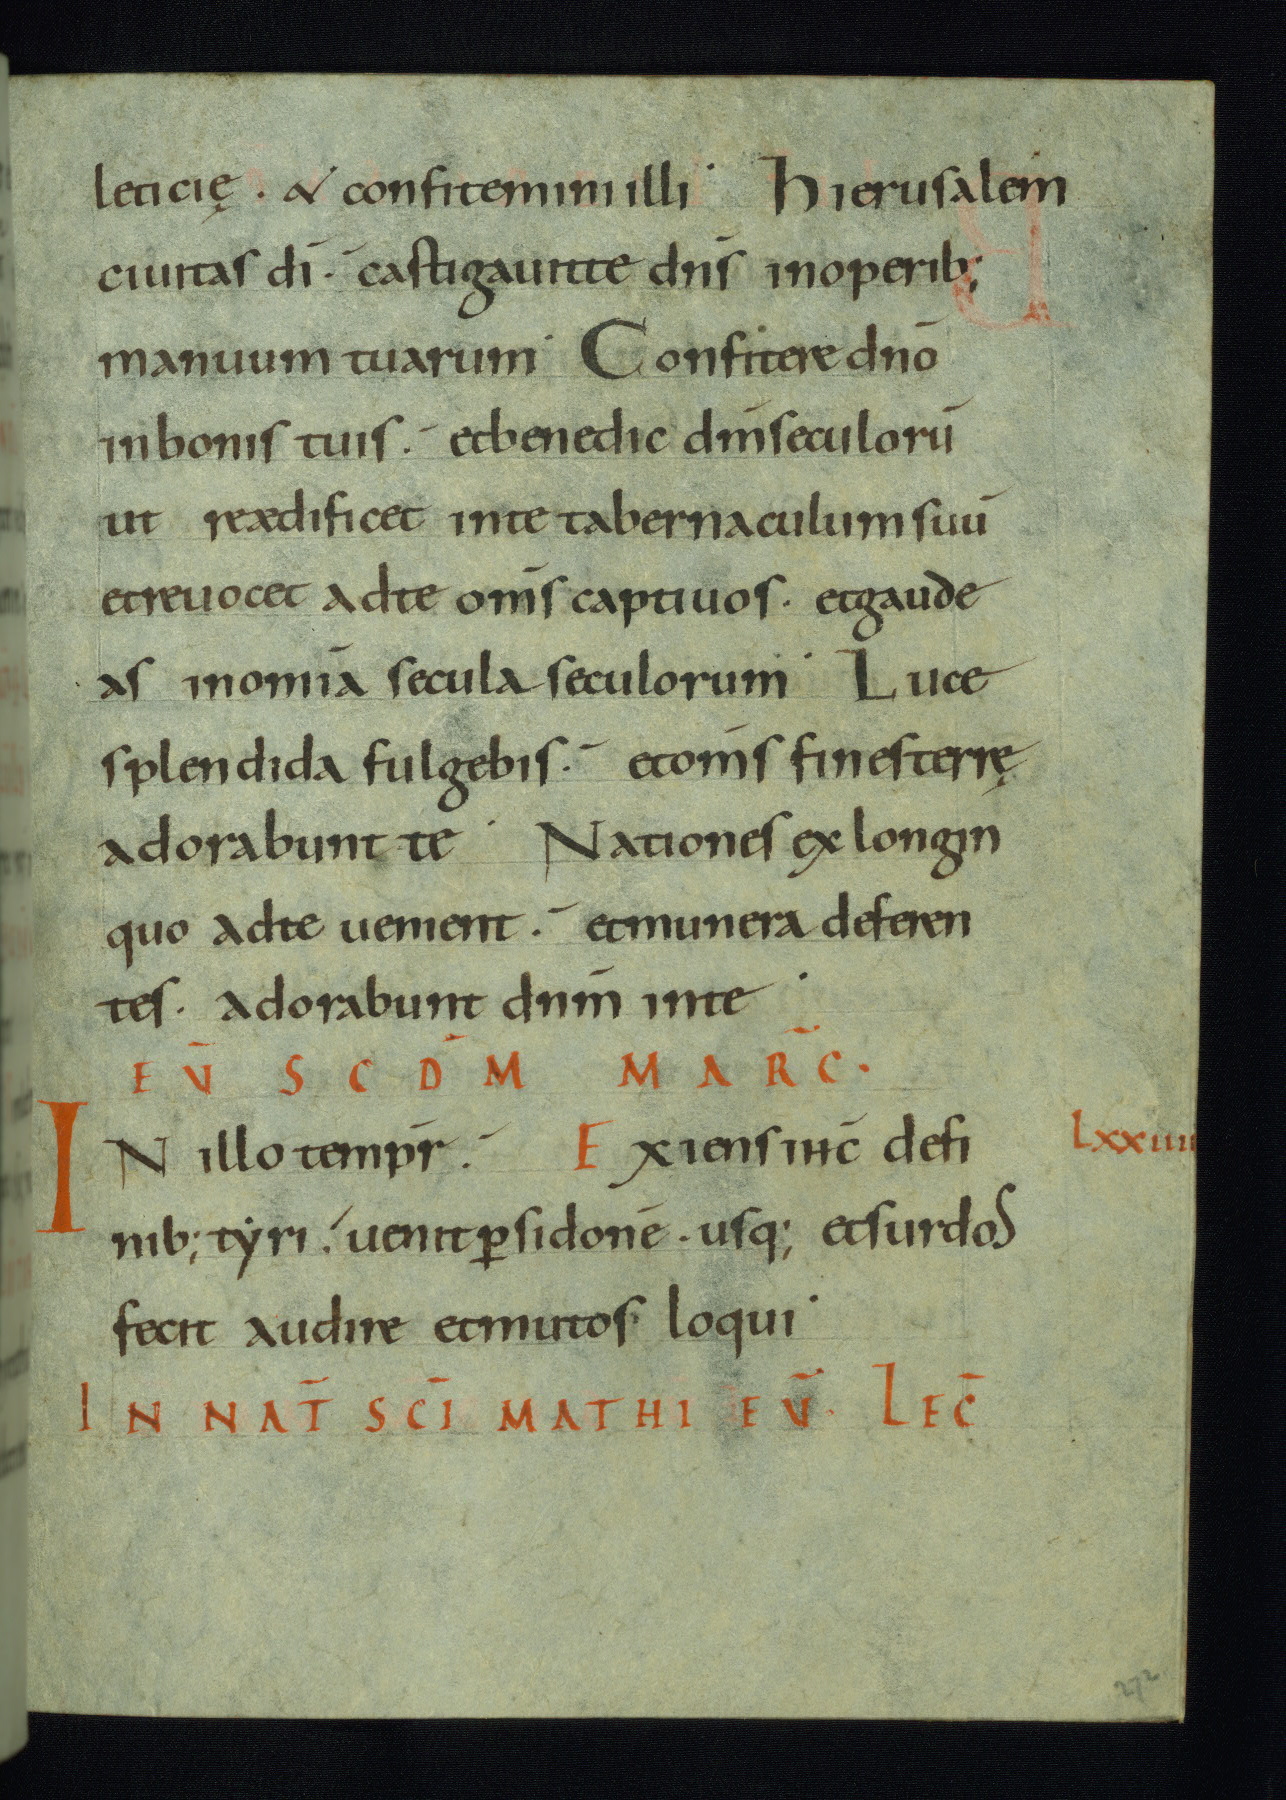 leticię . & confitemini illi · Hierusalem
ciuitas dī · castigauit te dn̄s in operib;
manuum tuarum · Confitere dnō
in bonis tuis · et benedic dm̄ seculorū
ut reædificet in te tabernaculum suū
et reuocet ad te om̄s captiuos · et gaude
as in omīa secula seculorum · Luce
splendida fulgebis · et om̄s fines terrę
adorabunt te · Nationes ex longin
quo ad te uenient · et munera deferen
tes · adorabunt dnm̄ in te ·
EŪ SCDM̄ MARC̄ ·
IN illo tempr̄ · Exiens ihc̄ de fi
LXXIIII
nib; tyri · uenit ꝑ sidonē · usq; et surdos
fecit audire et mutos loqui ·
IN NAT̄ SCĪ MATHI EŪ · LEC̄
272